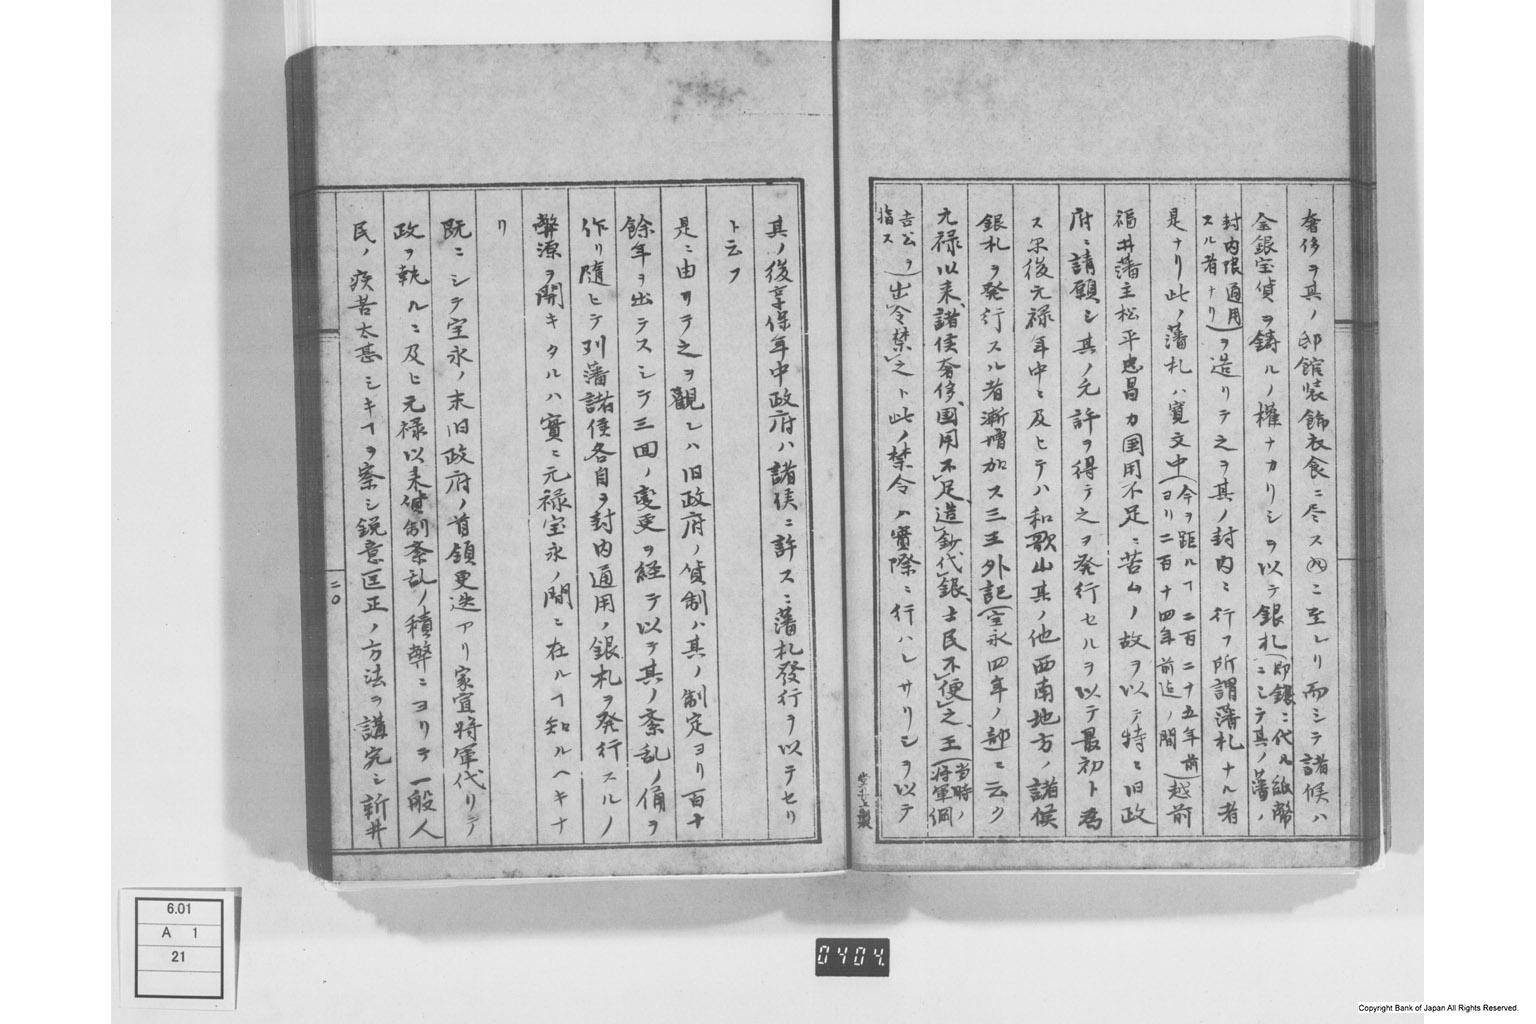 奢侈ヲ其ノ邸館装飾衣食ニ尽スニ至レリ而シテ諸候ハ
金銀宝貨ヲ鋳ルノ権ナカリシヲ以テ銀札(即銀ニ代ル紙幣ニシテ其ノ藩ノ
封内限通用スル者ナリ)ヲ造リテ之ヲ其ノ封内ニ行フ所謂藩札ナル者
是ナリ此ノ藩札ハ寛文中(今ヲ距ルヿ二百二十五年前ヨリ二百十四年前迄ノ間)越前
福井藩主松平忠昌カ国用不足ニ苦ムノ故ヲ以テ特ニ旧政
府ニ請願シ其ノ允許ヲ得テ之ヲ発行セルヲ以テ最初ト為
ス尓後元禄年中ニ及ヒテハ和歌山其ノ他西南地方ノ諸候
銀札ヲ発行スル者漸増加ス三王外記(宝永四年ノ部)ニ云ク
元禄以来諸侯奢侈国用不足造鈔代銀士民不便之王(当時ノ将軍綱
吉公ヲ指ス)出令禁之ト此ノ禁令ハ實際ニ行ハレサリシヲ以テ
其ノ後享保年中政府ハ諸侯ニ許スニ藩札發行ヲ以テセリ
ト云フ
是ニ由リテ之ヲ観レハ旧政府ノ貨制ハ其ノ制定ヨリ百十
餘年ヲ出テスシテ三回ノ変更ヲ経テ以テ其ノ紊乱ノ俑ヲ
作リ随ヒテ列藩諸侯各自ヲ封内通用ノ銀札ヲ発行スルノ
弊源ヲ開キタルハ實ニ元禄宝永ノ間ニ在ルヿ知ルヘキナ
リ
既ニシテ宝永ノ末旧政府ノ首領更迭アリ家宣将軍代リテ
政ヲ執ルニ及ヒ元禄以来貨制紊乱ノ積弊ニヨリテ一般人
民ノ疾苦太甚シキヿヲ察シ鋭意匡正ノ方法ヲ講究シ新井
二〇
6.01
A 1
21
0404
Copyright Bank of Japan All Rights Reserved.